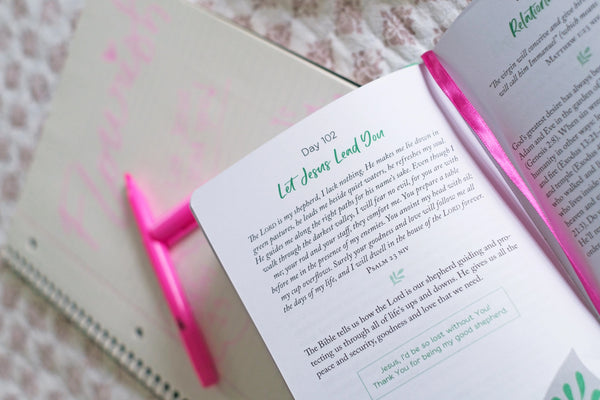 flourish
Day 102
Let Jesus Lead You
The LORD is my shepherd, I lack nothing. He makes me lie down in
green pastures, he leads me beside quiet waters, he refreshes my soul.
He guides me along the right paths for his name's sake. Even though I
walk through the darkest valley, I will fear no evil, for you are with
me; your rod and your staff, they comfort me. You prepare a table
before me in the presence of my enemies. You anoint my head with oil;
my cup overflows. Surely your goodness and love will follow me all
the days of my life, and I will dwell in the house of the LORD forever.
PSALM 23 NIV
The Bible tells us how the Lord is our shepherd guiding and pro-
tecting us through all of life's ups and downs. He gives us all the
peace and security, goodness and love that we need.
Jesus, I'd be so lost without You!
Thank You for being my good shepherd.
"The virgin will conceive and give birth
will call him Immanuel" (which means
MATTHEW 1:23 NIV
God's greatest desire has always be
Adam and Eve in the garden of
(Genesis 2:8). When sin went
humanity in other ways,
and fire (Exodus 13:21-
who walked